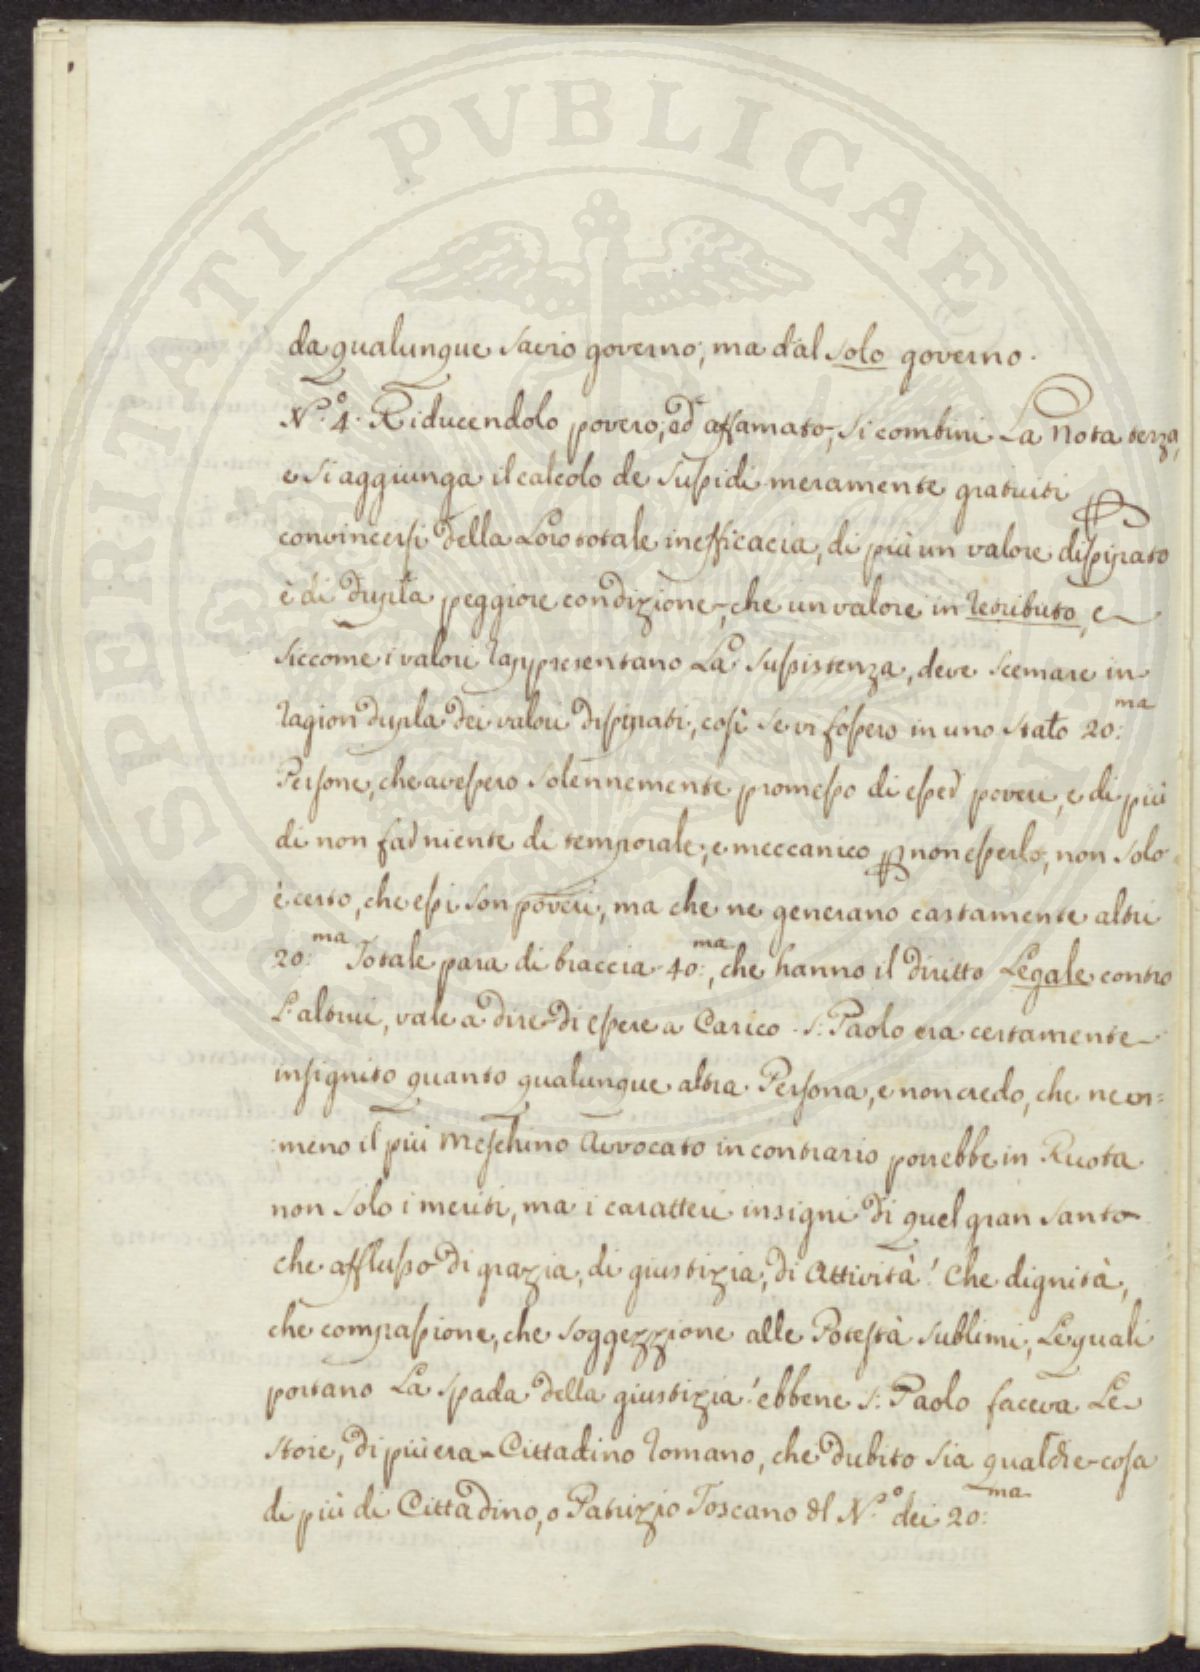 da qualunque savio governo, ma dal solo governo.
N.º 4. Riducendolo povero, ed affamato, si combini La Nota terza,
e si aggiunga il calcolo de sussidi meramente gratuiti p
convincersi della Loro totale inefficacia, di più un valore dissipato
è di dupla peggiore condizione, che un valore in retributo, e
siccome i valori rappresentano La sussistenza, deve scemare in
ragion dupla dei valori dissipati, così se vi fossero in uno stato 20:ma
Persone, che avessero solennemente promesso di esser poveri, e di più
di non far niente di temporale, e meccanico p non esserlo, non solo
è certo, che essi son poveri, ma che ne generano castamente altri
20:ma Totale para di braccia 40:ma, che hanno il diritto Legale contro
L'altrui, vale a dire di essere a Carico. S: Paolo era certamente
insignito quanto qualunque altra Persona, e non credo, che nem=
meno il più meschino Avvocato in contrario porrebbe in Ruota
non solo i meriti, ma i caratteri insigni di quel gran santo
che afflusso di grazia, di giustizia, di Attività! Che dignità,
che compassione, che soggezzione alle Potestà sublimi, Le quali
portano La spada della giustizia! ebbene S: Paolo faceva Le
stoie, di più era Cittadino romano, che dubito sia qualche cosa
di più di Cittadino, o Patrizio Toscano del N.º dei 20:ma
SPERITATI PVBLICAE